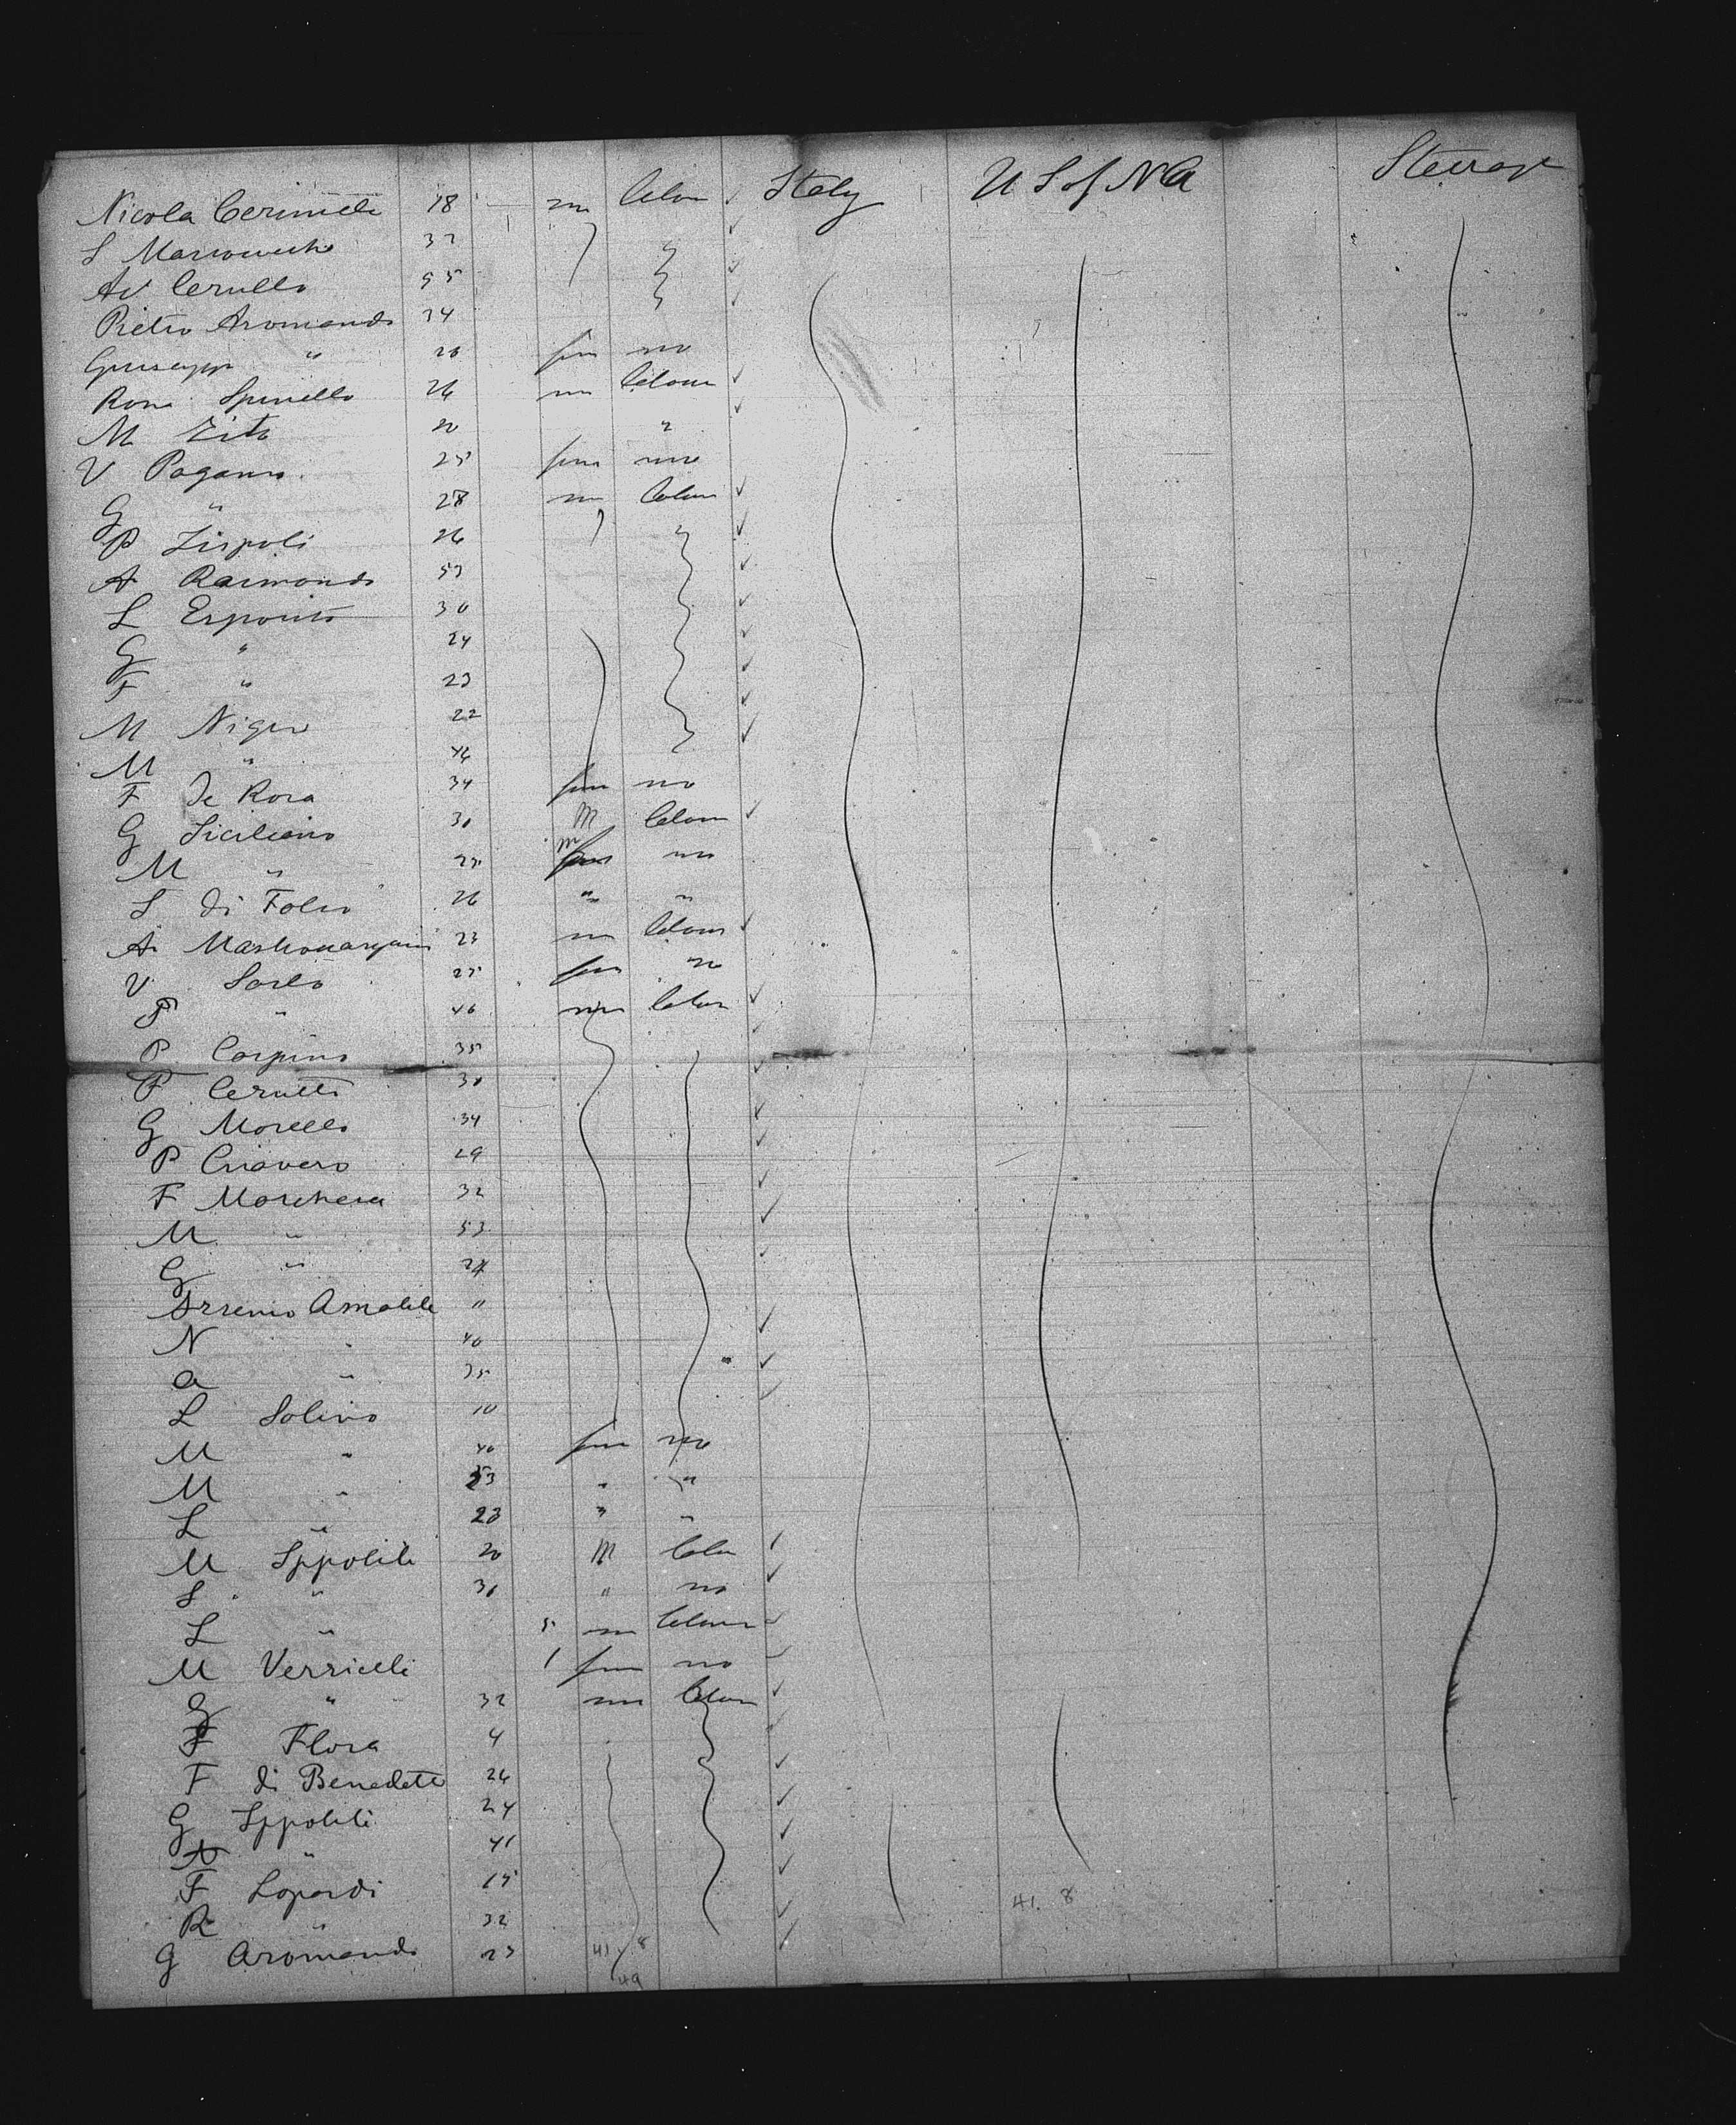 Nicola Cerimele 18 m Colon Italy U S of N A Steerage
S 32
A Cerullo 55
Pietro Aromando 34
Giusepp " 26 fem no
Rosa Spinello 26 m Colon
M Zito 20 "
V Pagano 25 fem no
G " 28 m Colon
P Zispoli 26
A Raimondo 53
L Esposito 30
G " 24
F " 23
M Nigro 22
M " 46
F De Rosa 34 fem no
G Siciliano 30 M Colon
M " 25 m no
S di Folio 26 " "
A 23 m Colon
V Sarlo 25 fem no
P " 46 m Colon
P Carpino 35
P Cerutti 30
G Morello 34
P Criavero 29
F Marchesa 32
M " 53
G " 24
Arsenio Amabile "
N " 40
A " 35
L Solino 10
M " 40 fem no
M " 53 " "
L " 23 " "
M Ippoliti 20 M Colon
S " 30 " no
L " 5 m Colon
M Verrielli 1 fem no
G " 32 m Colon
F Flora 4
F di Benedetto 26
G Ippoliti 24
A " 41
F Lopardi 15 41. 8
R " 32
G Aromando 23 41 8
49